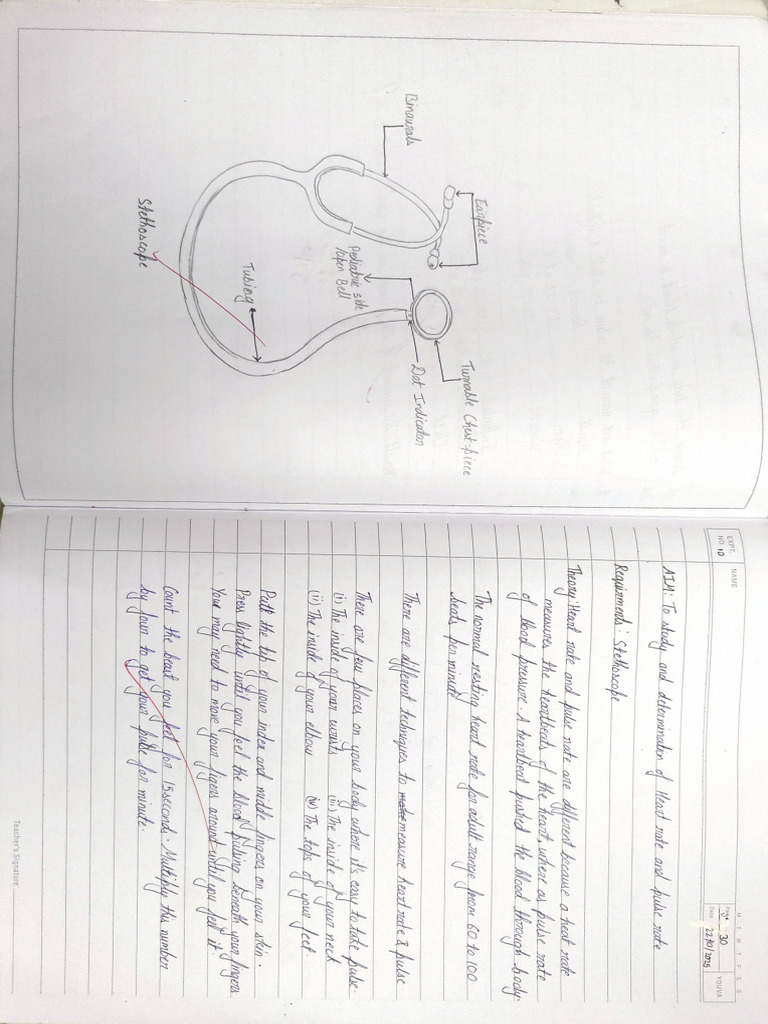 Binaurals
Earpiece
Pediatric side
/open Bell
Turnable Chest-piece
Dot Indicator
Tubing
Stethoscope
EXPT.
NO. 10
NAME
M T W T F S S
Page No: 30
Date: 22/10/2025
YOUVA
AIM: To study and determination of Head rate and pulse rate
Requirments: Stethoscope
Theory: Heart rate and pulse rate are different because a heat rate
measures the heartbeats of the heart, where as pulse rate
of blood pressure. A heartbeat pushed the blood through body.
The normal resting heart rate for adult range from 60 to 100
beats per minute
There are different techniques to make measure heart rate & pulse.
There are few places on your body where it's easy to take pulse.
(i) The inside of your wrists (iii) The inside of your neck
(ii) The inside of your elbow (iv) The tops of your feet
Putt the tip of your index and middle fingers on your skin.
Press lightly until you feel the blood pulsing beneath your fingers
You may need to move your figers around until you feel it.
Count the beast you feet for 15 seconds. Multiply this number
by four to get your pulse for minute.
Teacher's Signature: